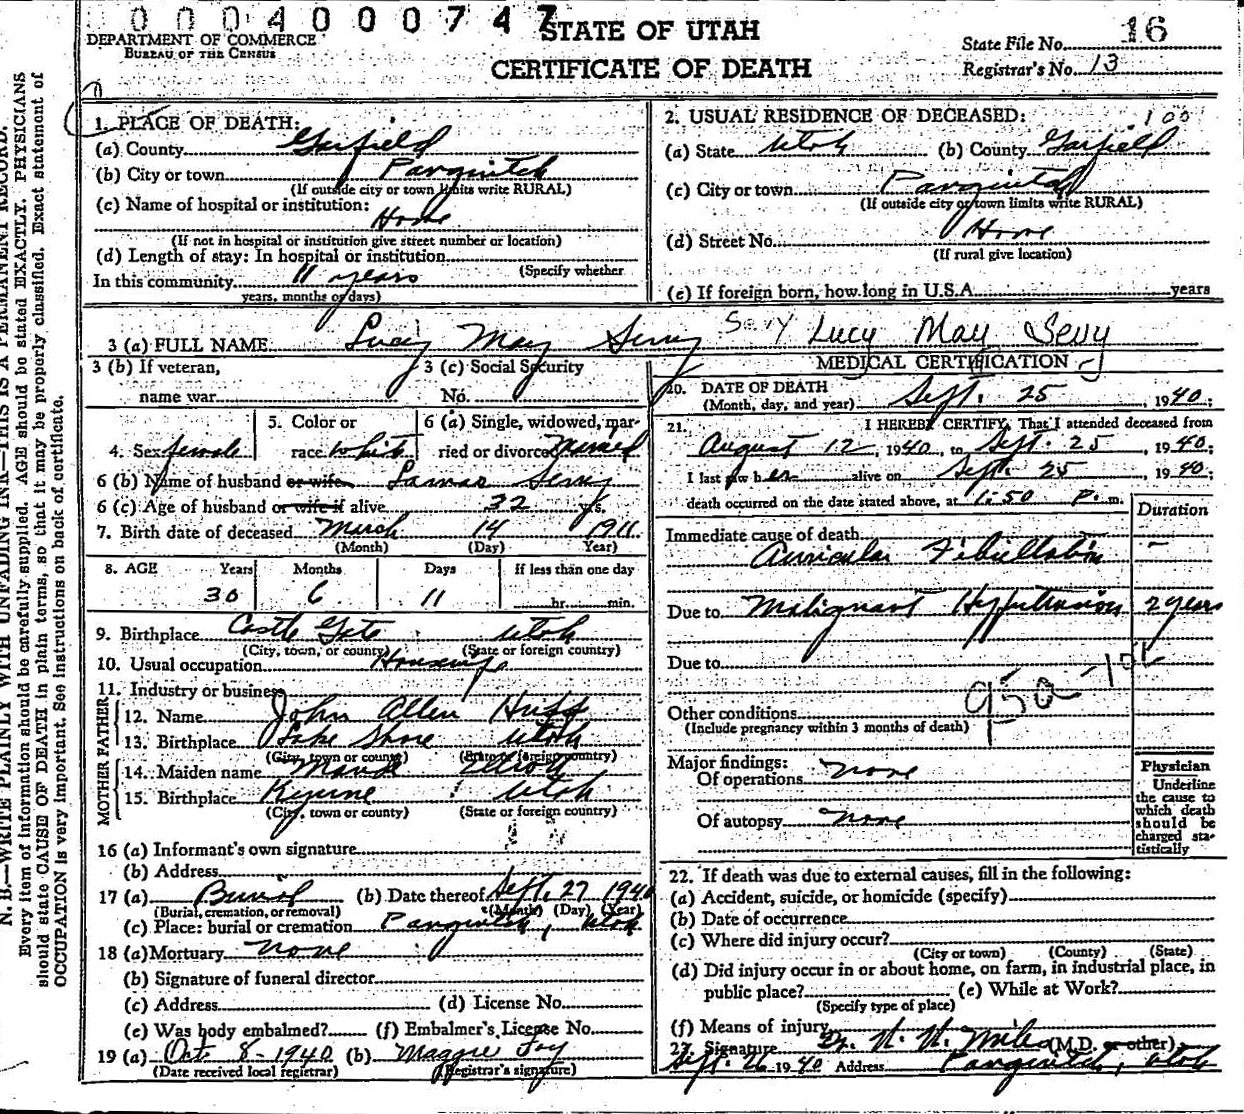 0004000747
STATE OF UTAH
DEPARTMENT OF COMMERCE
BUREAU OF THE CENSUS
CERTIFICATE OF DEATH
State File No. 16
Registrar's No. 13
1. PLACE OF DEATH:
(a) County Garfield
(b) City or town Panguitch
(If outside city or town limits write RURAL)
(c) Name of hospital or institution:
Home
(If not in hospital or institution give street number or location)
(d) Length of stay: In hospital or institution
(Specify whether
In this community 11 years
years, months or days)
2. USUAL RESIDENCE OF DECEASED: 100
(a) State Utah (b) County Garfield
(c) City or town Panguitch
(If outside city or town limits write RURAL)
(d) Street No. Home
(If rural give location)
(e) If foreign born, how long in U.S.A. years
3 (a) FULL NAME Lucy May Sevy Sevy Lucy May Sevy
3 (b) If veteran, name war
3 (c) Social Security No.
4. Sex female
5. Color or race White
6 (a) Single, widowed, married or divorced Married
6 (b) Name of husband or wife Lamar Sevy
6 (c) Age of husband or wife if alive 32 yrs.
7. Birth date of deceased March 14 1911
(Month) (Day) Year)
8. AGE Years Months Days If less than one day
30 6 11 hr. min.
9. Birthplace Castle Gate Utah
(City, town, or county) (State or foreign country)
10. Usual occupation Housewife
11. Industry or business
FATHER
12. Name John Allen Huff
13. Birthplace Lake Shore Utah
(City, town or county) (State or foreign country)
MOTHER
14. Maiden name
15. Birthplace Kyune Utah
(City, town or county) (State or foreign country)
16 (a) Informant's own signature
(b) Address
17 (a) Burial (b) Date thereof Sept. 27 1940
(Burial, cremation, or removal) (Month) (Day) (Year)
(c) Place: burial or cremation Panguitch, Utah
18 (a) Mortuary none
(b) Signature of funeral director
(c) Address (d) License No.
(e) Was body embalmed? (f) Embalmer's License No.
19 (a) Oct 8-1940 (b) Maggie Foy
(Date received local registrar) (Registrar's signature)
MEDICAL CERTIFICATION
20. DATE OF DEATH
(Month, day, and year) Sept. 25, 1940;
21. I HEREBY CERTIFY, That I attended deceased from
August 12, 1940, to Sept. 25, 1940;
I last saw her alive on Sept. 25, 1940;
death occurred on the date stated above, at 1:50 P. m.
Duration
Immediate cause of death
Auricular Fibrillation -
Due to Malignant Hypertension 2 years
Due to
95a
Other conditions
(Include pregnancy within 3 months of death)
Major findings:
Of operations none
Of autopsy none
Physician
Underline
the cause to
which death
should be
charged sta-
tistically
22. If death was due to external causes, fill in the following:
(a) Accident, suicide, or homicide (specify)
(b) Date of occurrence
(c) Where did injury occur?
(City or town) (County) (State)
(d) Did injury occur in or about home, on farm, in industrial place, in
public place? (e) While at Work?
(Specify type of place)
(f) Means of injury
23. Signature Dr. (M.D. or other)
Sept. 26 1940 Address Panguitch, Utah
N. B.—WRITE PLAINLY WITH UNFADING INK—THIS IS A PERMANENT RECORD.
Every item of information should be carefully supplied. AGE should be stated EXACTLY. PHYSICIANS
should state CAUSE OF DEATH in plain terms, so that it may be properly classified. Exact statement of
OCCUPATION is very important. See instructions on back of certificate.